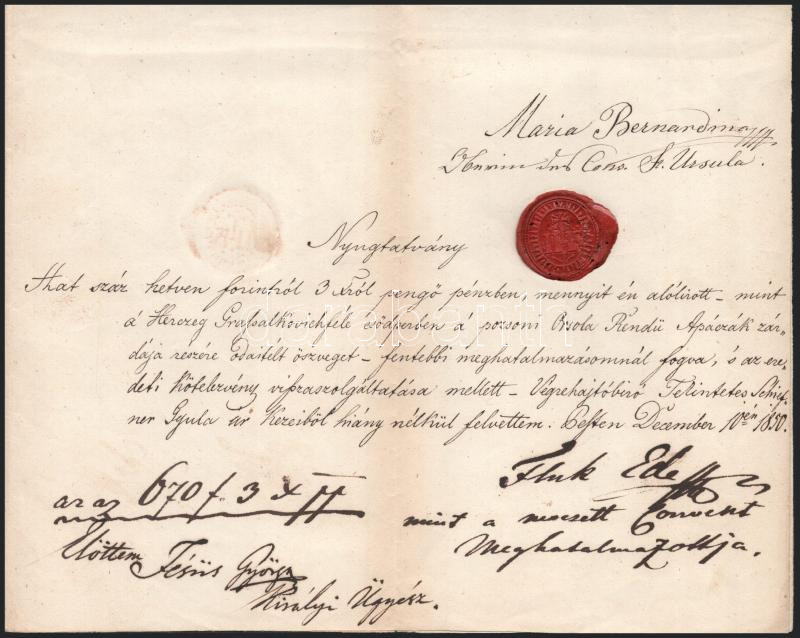 Maria Bernardina
Oberin des Conv. St. Ursula.
Nyugtatvány
Hat száz hetven forintról 3 xról pengő pénzben, mennyit én alólirott – mint
a Herczeg Grasalkovichféle csődperben a posoni Orsola Rendü Apáczák zár-
dája részére odaitélt öszveget – fentebbi meghatalmazásomnál fogva, 's az ere-
deti Kötelezvény viszaszolgáltatása mellett – Végrehajtóbiró Tekintetes
Gyula úr Kezeiből hiány nélkül felvettem. Pesten December 10én 1850.
az az 670 f. 3 x pp
Fluk Ede
mint a nevezett Convent
Meghatalmazottja.
Előttem
György
Királyi Ügyész.
darabanth